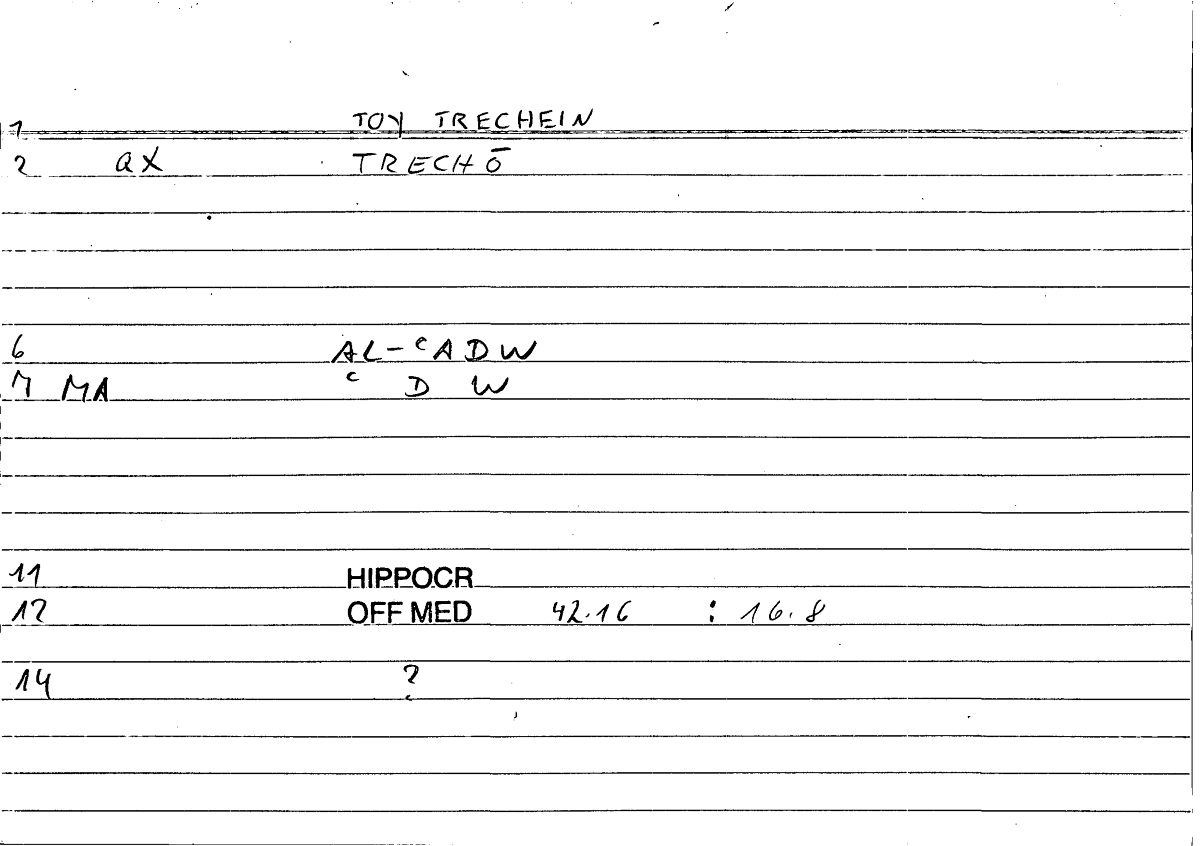 1 TOY TRECHEIN
2 QX TRECHŌ
6 AL-ᶜADW
7 MA ᶜ D W
11 HIPPOCR
12 OFF MED 42.16 : 16.8
14 ?